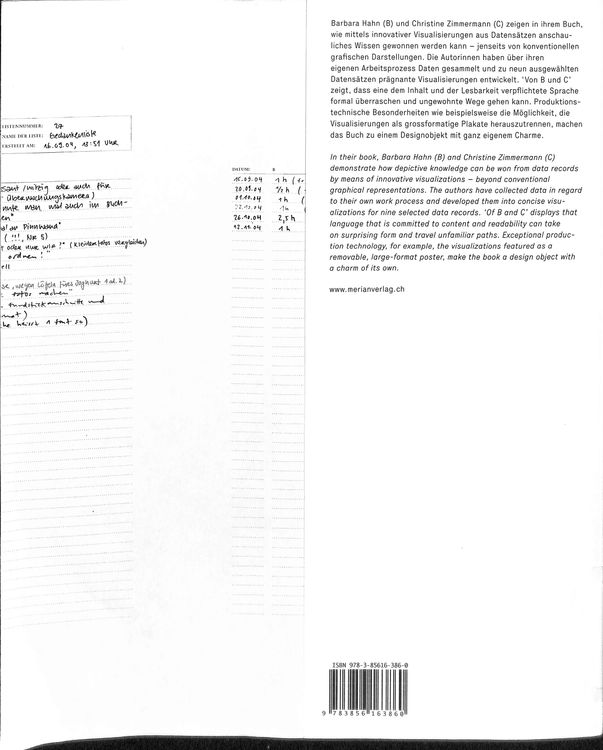 LISTENNUMMER: 27
NAME DER LISTE: Gedankenliste
ERSTELLT AM: 16.09.04, 13:51 Uhr
oder auch für
Überwachungskamera)
man mal auch im Buch-
en"
Pinnwand"
(!!!, Nr 8)
oder nur wir!" (Kleiderfotos vergleichen)
ordnen!"
fotos machen"
und
DATUM: B
16.09.04 1 h
20.09.04 1/2 h
01.10.04 1 h
22.10.04 1h
26.10.04 2,5 h
12.11.04 1 h
Barbara Hahn (B) und Christine Zimmermann (C) zeigen in ihrem Buch,
wie mittels innovativer Visualisierungen aus Datensätzen anschau-
liches Wissen gewonnen werden kann – jenseits von konventionellen
grafischen Darstellungen. Die Autorinnen haben über ihren
eigenen Arbeitsprozess Daten gesammelt und zu neun ausgewählten
Datensätzen prägnante Visualisierungen entwickelt. 'Von B und C'
zeigt, dass eine dem Inhalt und der Lesbarkeit verpflichtete Sprache
formal überraschen und ungewohnte Wege gehen kann. Produktions-
technische Besonderheiten wie beispielsweise die Möglichkeit, die
Visualisierungen als grossformatige Plakate herauszutrennen, machen
das Buch zu einem Designobjekt mit ganz eigenem Charme.
In their book, Barbara Hahn (B) and Christine Zimmermann (C)
demonstrate how depictive knowledge can be won from data records
by means of innovative visualizations – beyond conventional
graphical representations. The authors have collected data in regard
to their own work process and developed them into concise visu-
alizations for nine selected data records. 'Of B and C' displays that
language that is committed to content and readability can take
on surprising form and travel unfamiliar paths. Exceptional produc-
tion technology, for example, the visualizations featured as a
removable, large-format poster, make the book a design object with
a charm of its own.
www.merianverlag.ch
ISBN 978-3-85616-386-0
9 783856 163860